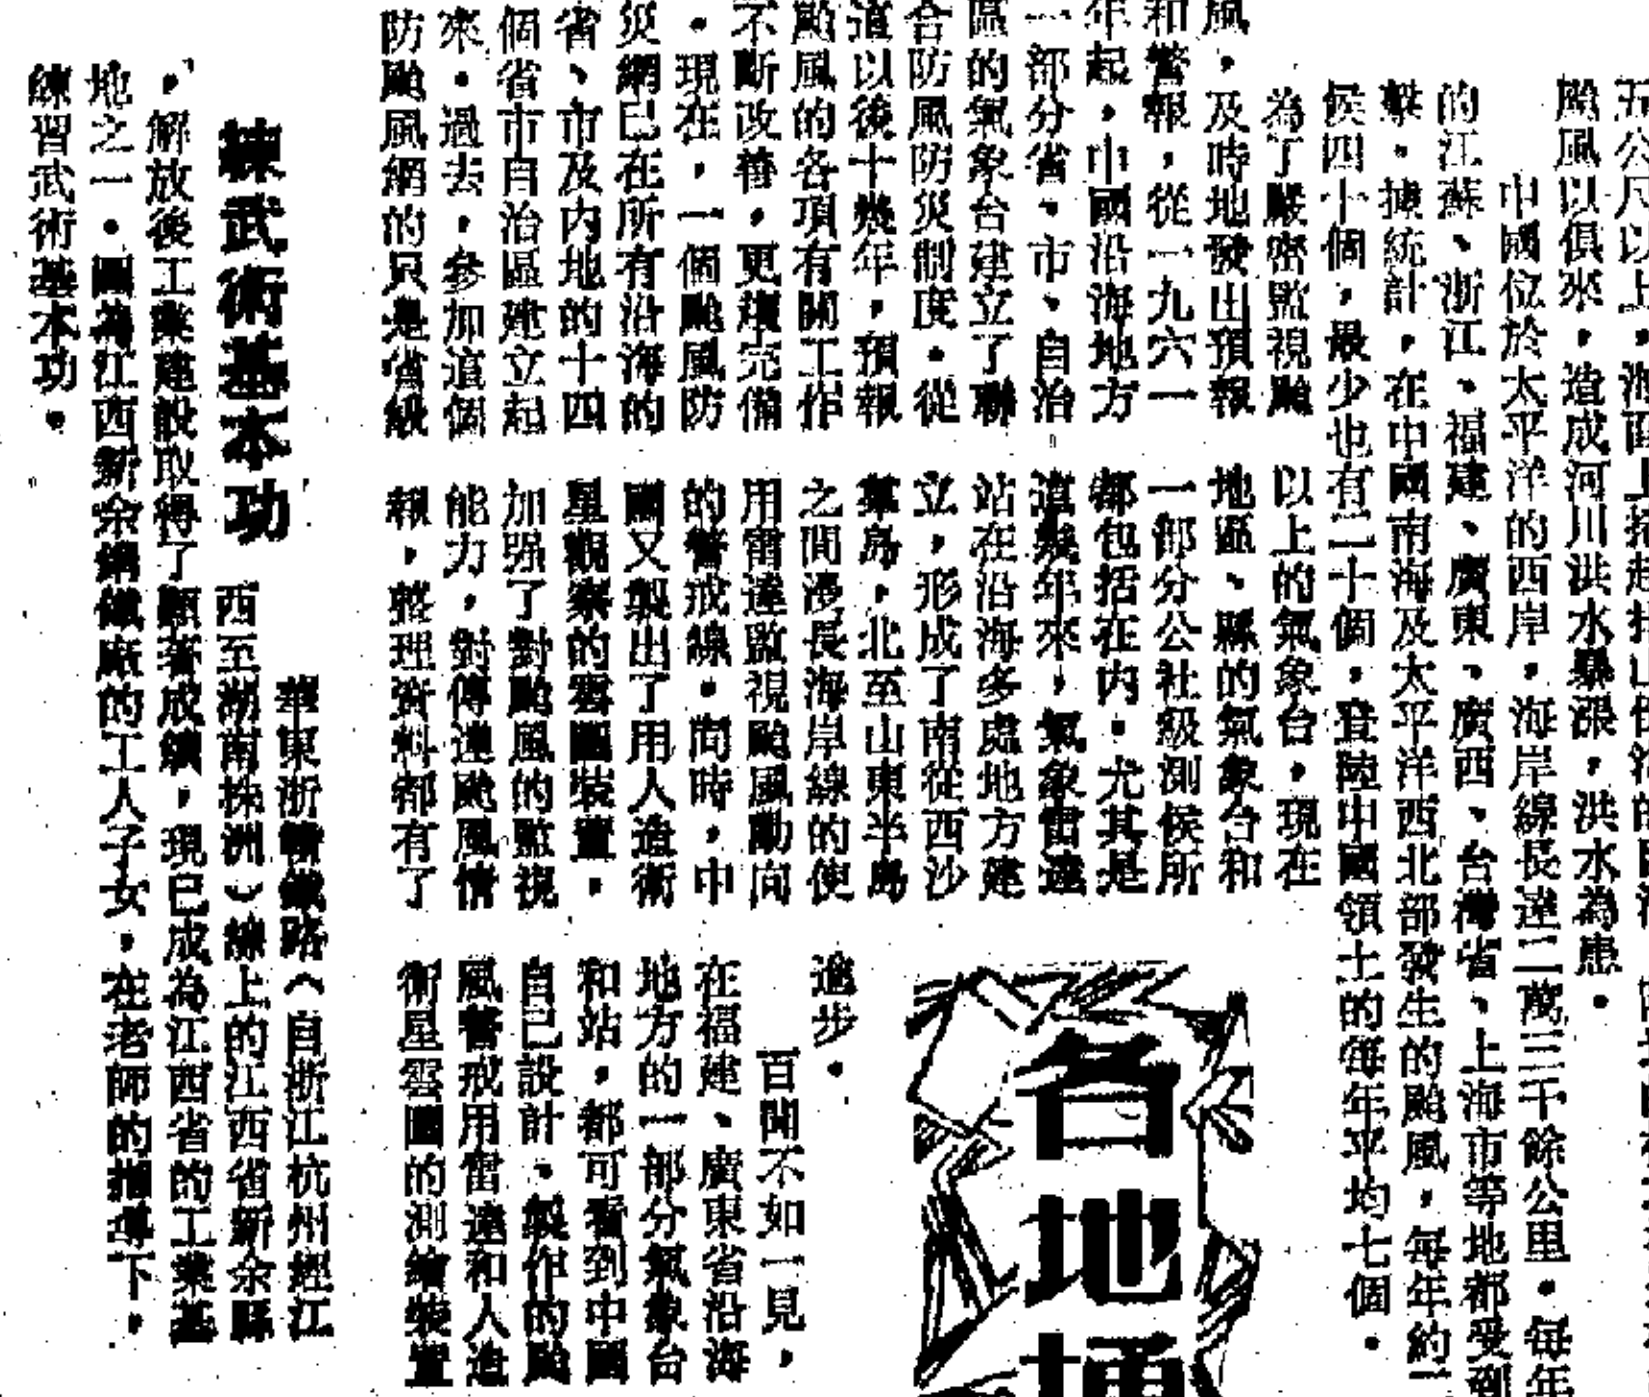 五公尺以上，海面上
颱風以俱來，造成河川洪水暴漲，洪水為患。
中國位於太平洋的西岸，海岸線長達二萬三千餘公里。每年
的江蘇、浙江、福建、廣東、廣西、台灣省、上海市等地都受到
擊。據統計，在中國南海及太平洋西北部發生的颱風，每年約
候四十個，最少也有二十個，登陸中國領土的每年平均七個。
為了嚴密監視颱
風，及時地發出預報
和警報，從一九六一
年起，中國沿海地方
一部分省、市、自治
區的氣象台建立了聯
合防風防災制度。從
這以後十幾年，預報
颱風的各項有關工作
不斷改善，更臻完備
。現在，一個颱風防
災網已在所有沿海的
省、市及內地的十四
個省市自治區建立起
來。過去，參加這個
防颱風網的只是省級
以上的氣象台，現在
地區、縣的氣象台和
一部分公社級測候所
都包括在內。尤其是
這幾年來，氣象雷達
站在沿海多處地方建
立，形成了南從西沙
羣島，北至山東半島
之間漫長海岸線的使
用雷達監視颱風動向
的警戒線。同時，中
國又製出了用人造衛
星觀察的雲圖裝置，
加强了對颱風的監視
能力，對傳遞颱風情
報，整理資料都有了
進步。
百聞不如一見，
在福建、廣東省沿海
地方的一部分氣象台
和站，都可看到中國
自己設計、製作的颱
風警戒用雷達和人造
衛星雲圖的測繪裝置
各地
練武術基本功
華東浙贛鐵路（自浙江杭州經江
西至湖南株洲）線上的江西省新余縣
，解放後工業建設取得了顯著成績，現已成為江西省的工業基
地之一。圖為江西新余鋼鐵廠的工人子女，在老師的指導下，
練習武術基本功。